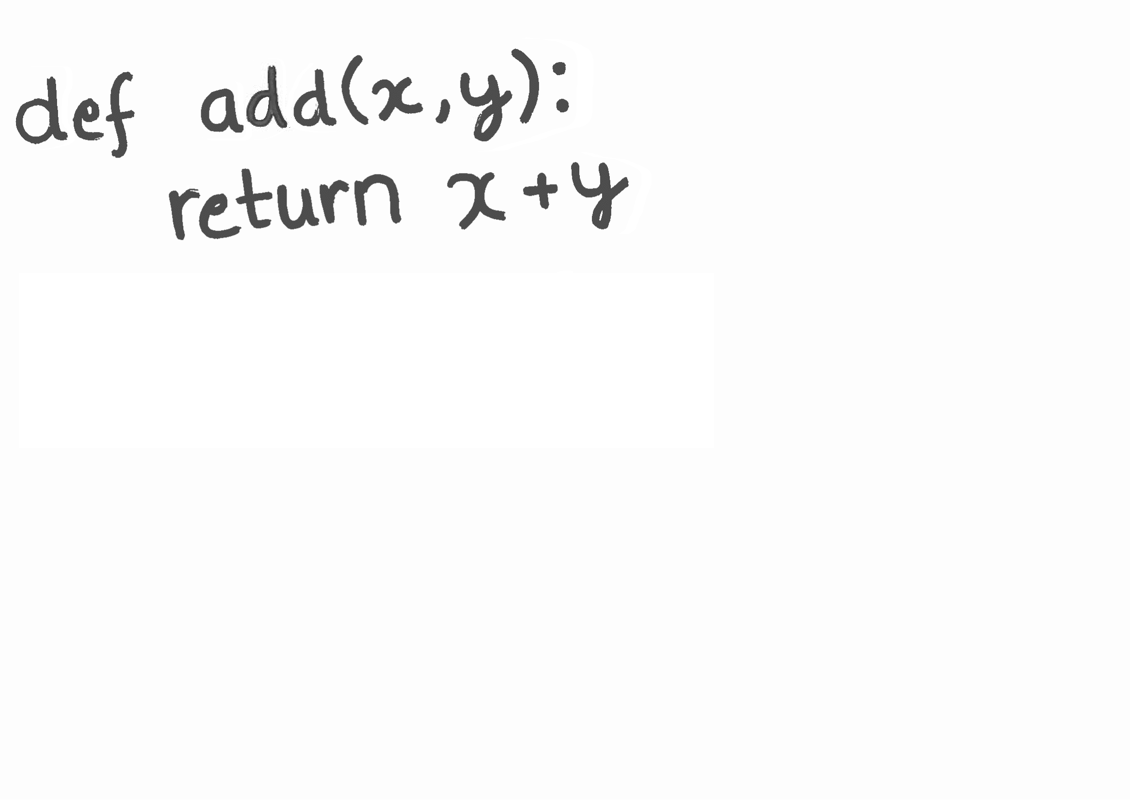 def add(x,y):
return x+y